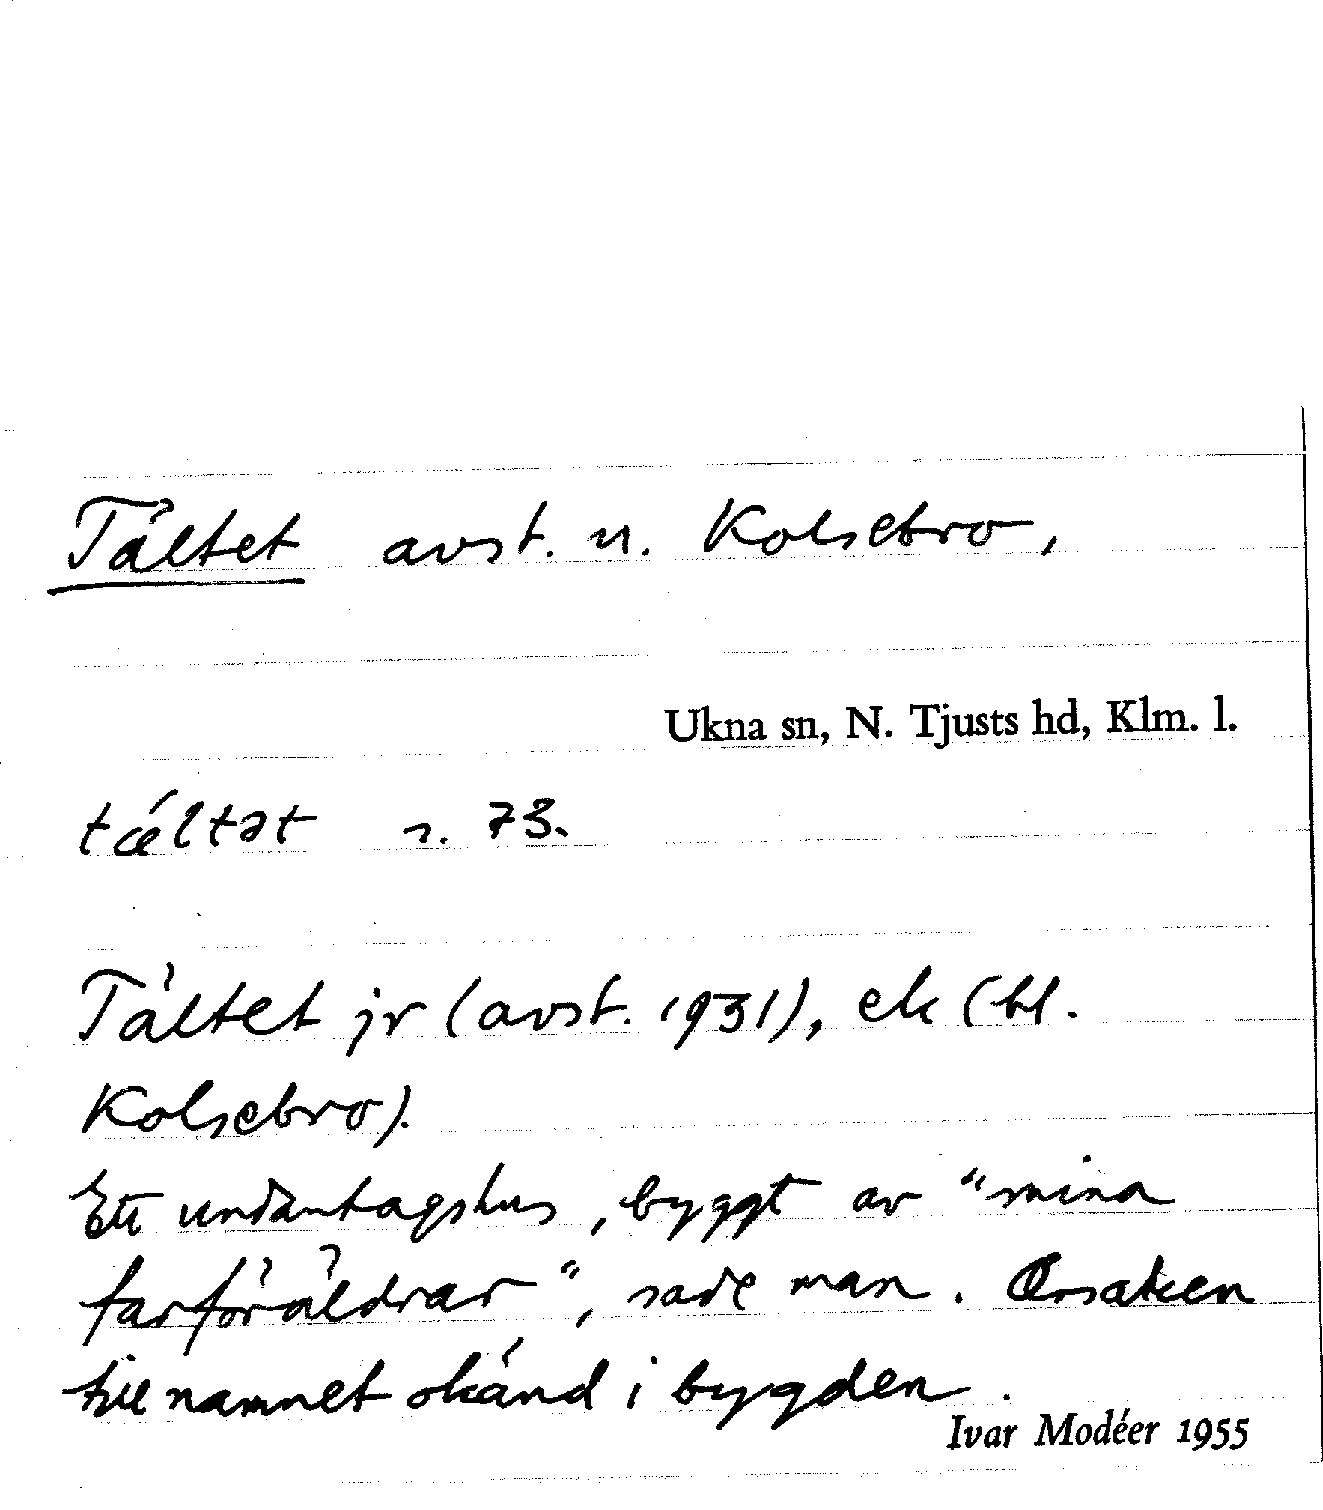 Tältet avst. u. Kolsebro,
Ukna sn, N. Tjusts hd, Klm. l.
tǽltət s. 73.
Tältet jr (avst. 1931), ek (bl.
Kolsebro).
Ett undantagshus, byggt av "mina
farföräldrar", sade man. Orsaken
till namnet okänd i bygden.
Ivar Modéer 1955